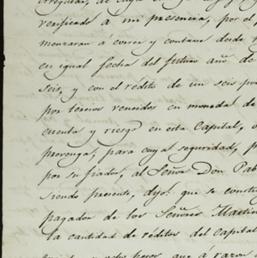 verificado a mi presencia, por el
menzaran á correr y contarse desde
en igual fecha del futuro año de
seis, y con el rédito de un seis por
por tercios vencidos en moneda de
cuenta y riesgo en esta Capital, o
prevenga, para cuya seguridad, p
por su fiador, al Señor Don Pab
siendo presente, dijo: que se constitu
pagador de los Señores Martin
la cantidad de réditos del capital
pesos que á razon